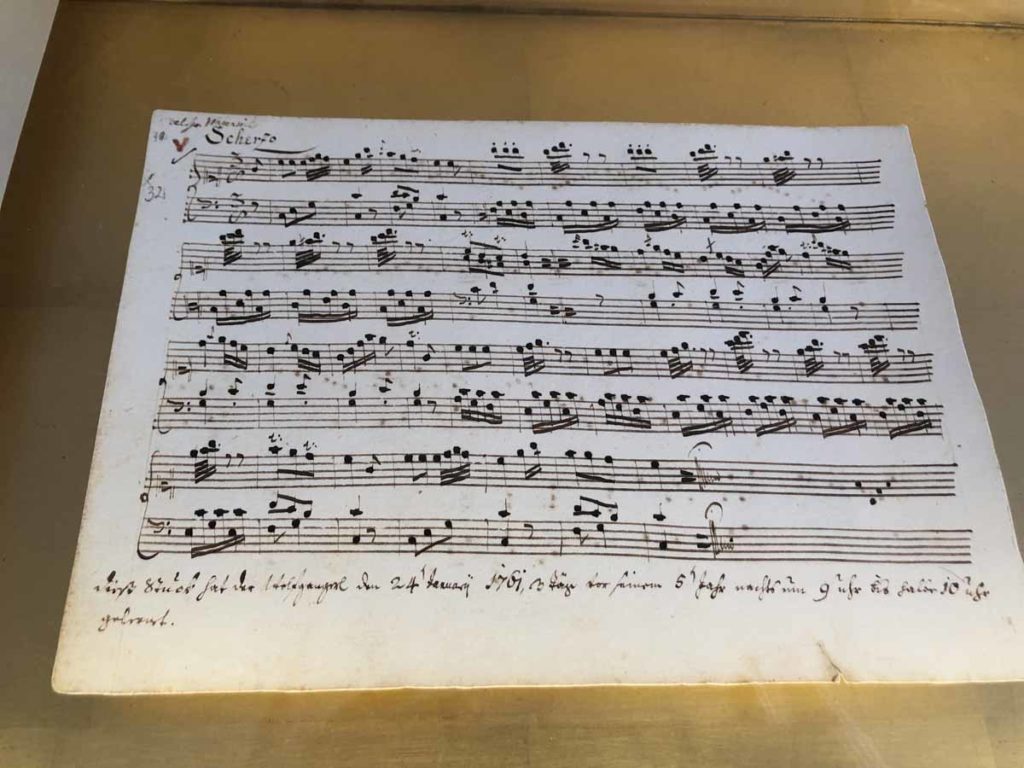 Wagenseil
Scherzo
32
dieß Stuck hat der Wolfgangerl den 24t January 1761, 3 täge vor seinem 5t Jahr nachts um 9 uhr bis halbe 10 uhr
gelernt.